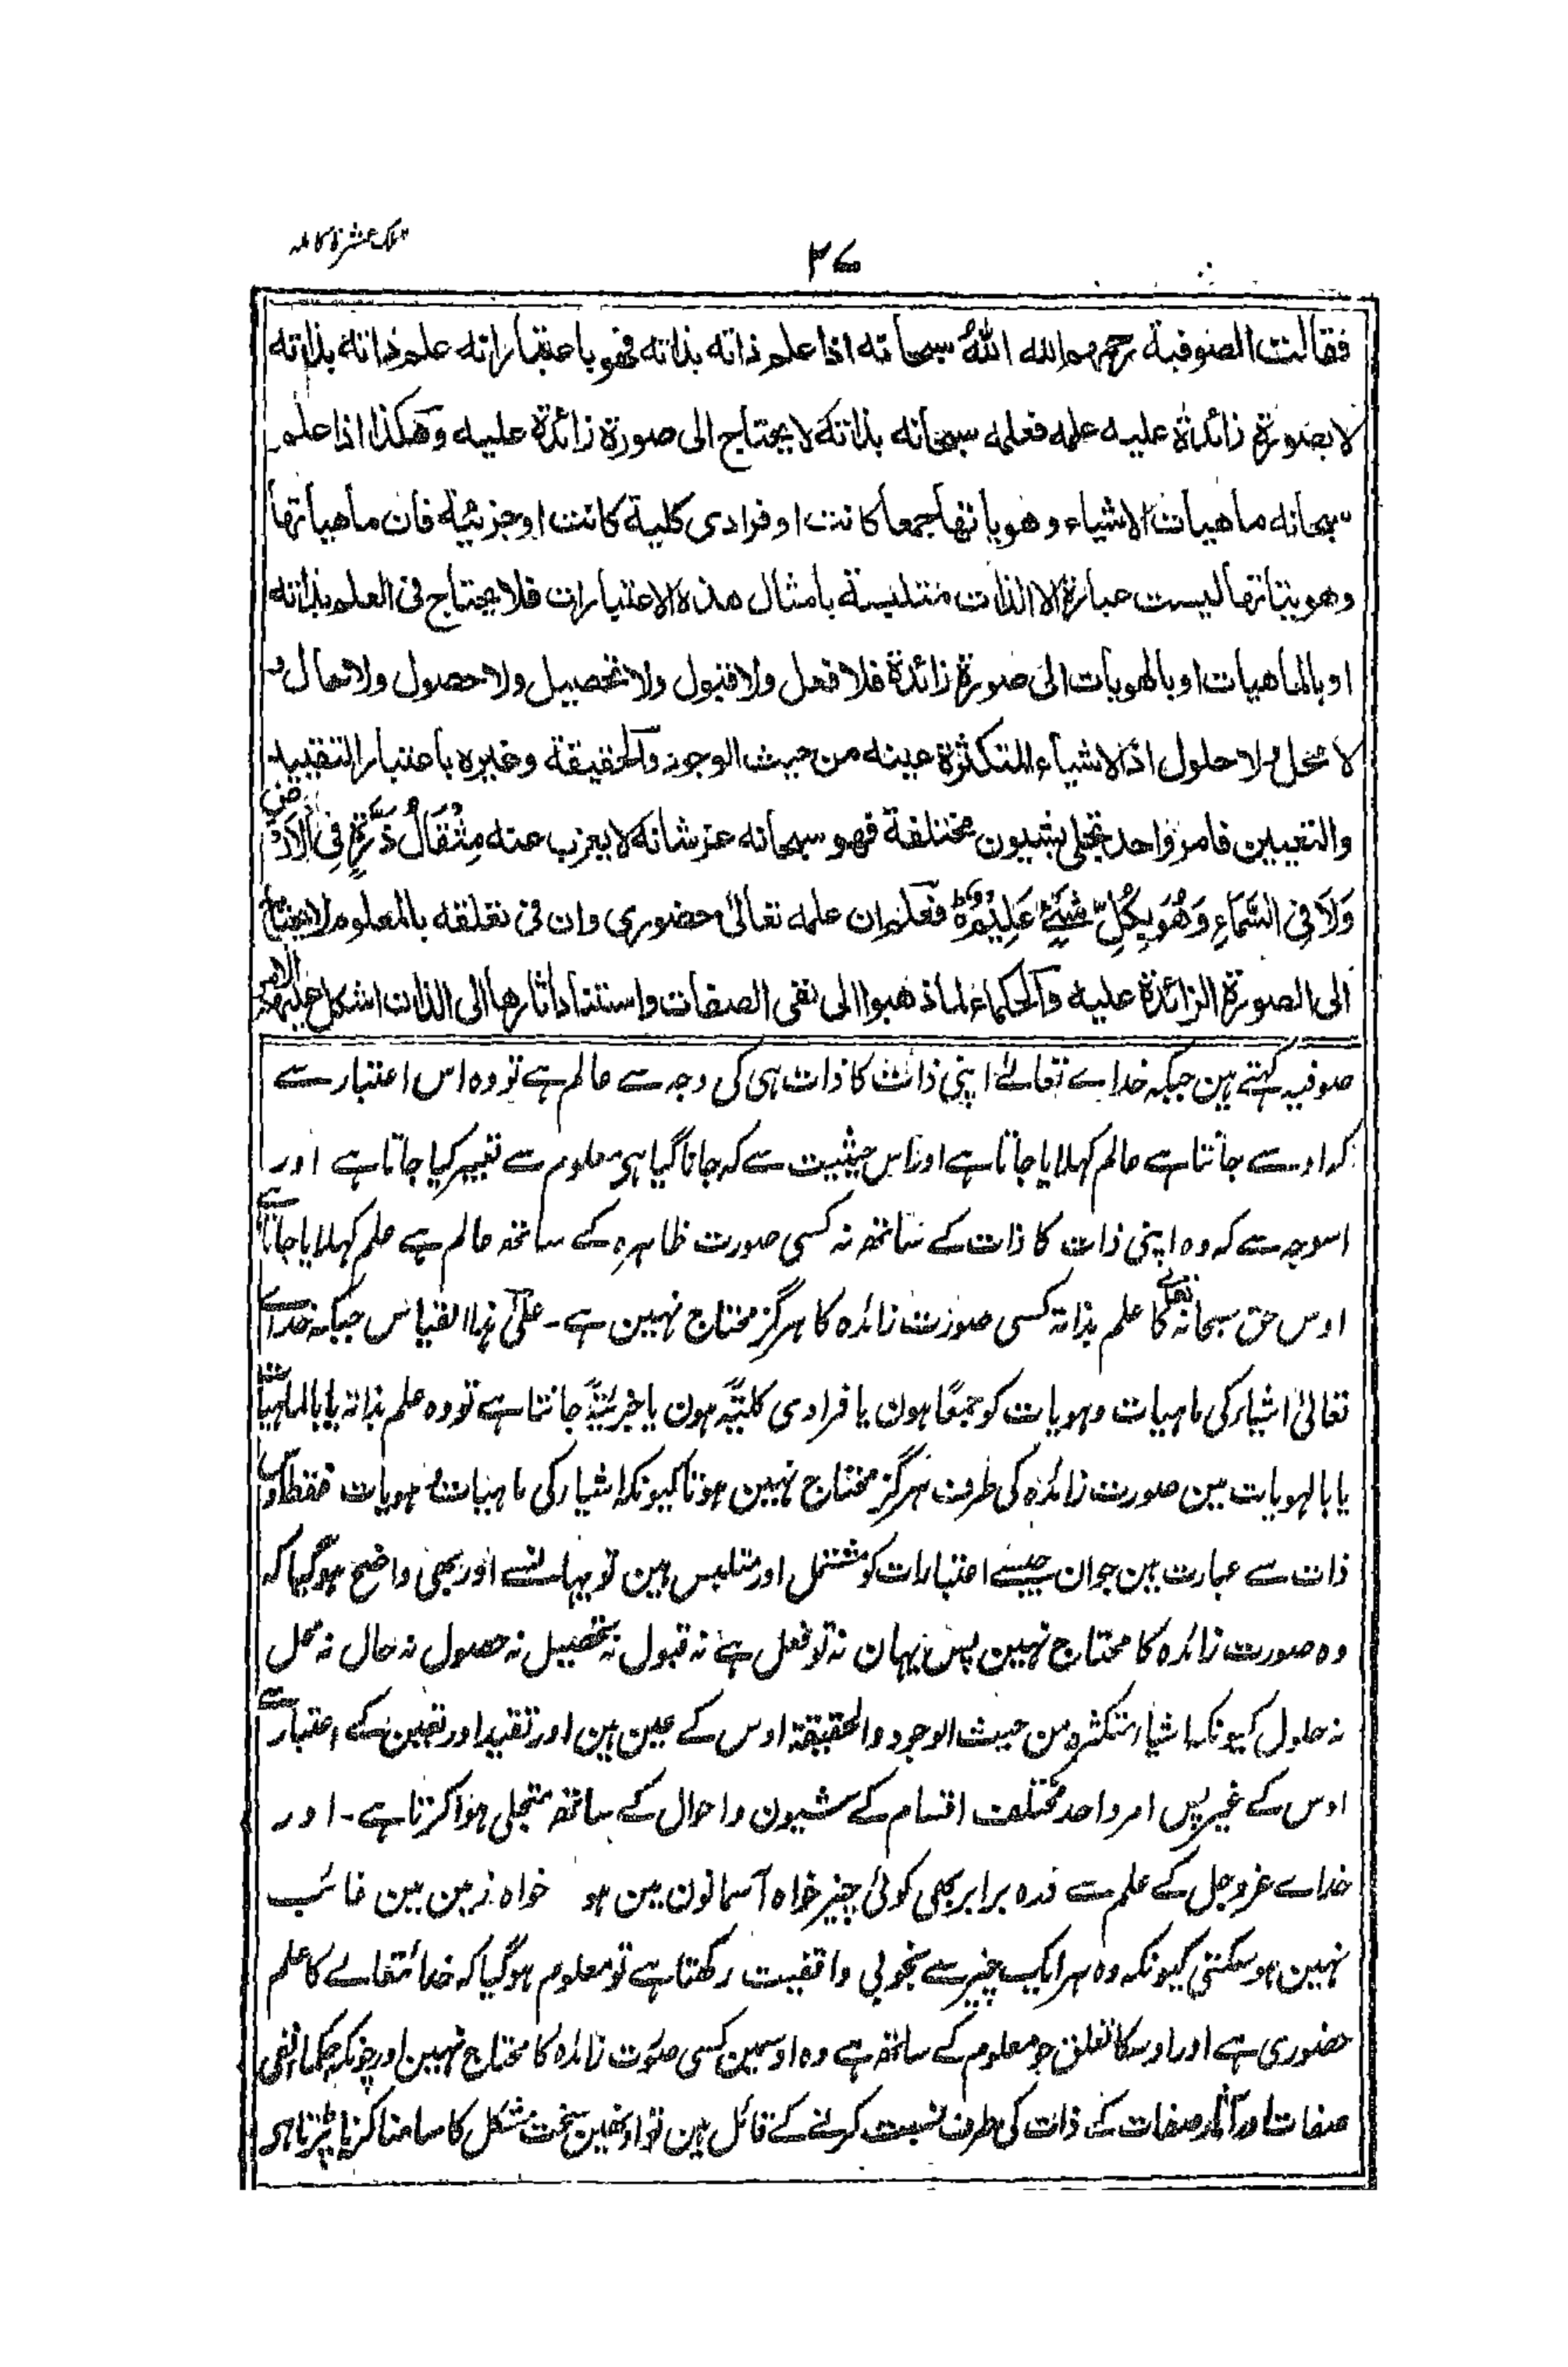 عشرۂ کاملہ
۳۷
فقالت الصوفیة رحمهم الله اللهُ سبحانه اذا علم ذاته بذاته فهو باعتبار انه علم ذاته بذاته
لا بصورة زائدة علیه علمه فعلمه سبحانه بذاته لا یحتاج الی صورة زائدة علیه وهکذا اذا علم
سبحانه ماهیات الاشیاء وهویاتها جمعا کانت او فرادی کلیة کانت او جزئیة فان ماهیاتها
وهویاتها لیست عبارة الا الذات متلبسة بامثال هذه الاعتبارات فلا یحتاج فی العلم بذاته
او بالماهیات او بالهویات الی صورة زائدة فلا فعل ولا قبول ولا تحصیل ولا حصول ولا حال و
لا محل ولا حلول اذ الاشیاء المتکثرة عینه من حیث الوجود والحقیقة وغیره باعتبار التقیید
والتعیین فامر واحد تجلی بشیون مختلفة فهو سبحانه عز شانه لا یعزب عنه مِثْقَالُ ذَرَّةٍ فِی الْاَرْضِ
وَلَا فِی السَّمَاءِ وَهُوَ بِکُلِّ شَیْءٍ عَلِیْمٌ فعلم ان علمه تعالیٰ حضوری وان فی تعلقه بالمعلوم لا یحتاج
الی الصورة الزائدة علیه والحکماء لما ذهبوا الی نفی الصفات واستناد اثارها الی الذات اشکل علیهم الامر
صوفیہ کہتے ہین جبکہ خداے تعالےٰ اپنی ذات کا ذات ہی کی وجہ سے عالم ہے تو وہ اس اعتبار سے
کہ اوسے جانتا ہے عالم کہلایا جاتا ہے اور اس حیثیت سے کہ جانا گیا ہی معلوم سے تعبیر کیا جاتا ہے اور
اسوجہ سے کہ وہ اپنی ذات کا ذات کے ساتھ نہ کسی صورت ظاہرہ کے ساتھ عالم ہے علم کہلایا جاتا ہے
اوس حق سبحانہ تعالے کا علم بذاتہ کسی صورت زائدہ کا ہرگز محتاج نہین ہے۔ علیٰ ہذا القیاس جبکہ خداے
تعالیٰ اشیار کی ماہیات وہویات کو جمعًا ہون یا فرادی کلیّۃً ہون یا جزئیّۃً جانتا ہے تو وہ علم بذاتہ یا بالماہیات
یا بالہویات مین صورت زائدہ کی طرف ہرگز محتاج نہین ہوتا کیونکہ اشیار کی ماہیات و ہویات فقط اوس
ذات سے عبارت ہین جو ان جیسے اعتبارات کو مشتمل اور متلبس ہین تو یہانسے اور بھی واضح ہوگیا کہ
وہ صورت زائدہ کا محتاج نہین پس یہان نہ تو فعل ہے نہ قبول نہ تحصیل نہ حصول نہ حال نہ محل
نہ حلول کیونکہ اشیار متکثرہ من حیث الوجود والحقیقة اوس کے عین ہین اور تقید اور تعین کے اعتبار سے
اوس کے غیر پس امر واحد مختلف اقسام کے شیون واحوال کے ساتھ متجلی ہوا کرتا ہے۔ اور
خداے عزوجل کے علم سے ذرہ برابر بھی کوئی چیز خواہ آسمانون مین ہو خواہ زمین مین غائب
نہین ہوسکتی کیونکہ وہ ہر ایک چیز سے بخوبی واقفیت رکھتا ہے تو معلوم ہوگیا کہ خدائتعالے کا علم
حضوری ہے اور اوسکا تعلق جو معلوم کے ساتھ ہے وہ اوسمین کسی صورت زائدہ کا محتاج نہین اور چونکہ حکما نفی
صفات اور آثار صفات کے ذات کی طرف نسبت کرنے کے قائل ہین تو اونھین سخت مشکل کا سامنا کرنا پڑتا ہی